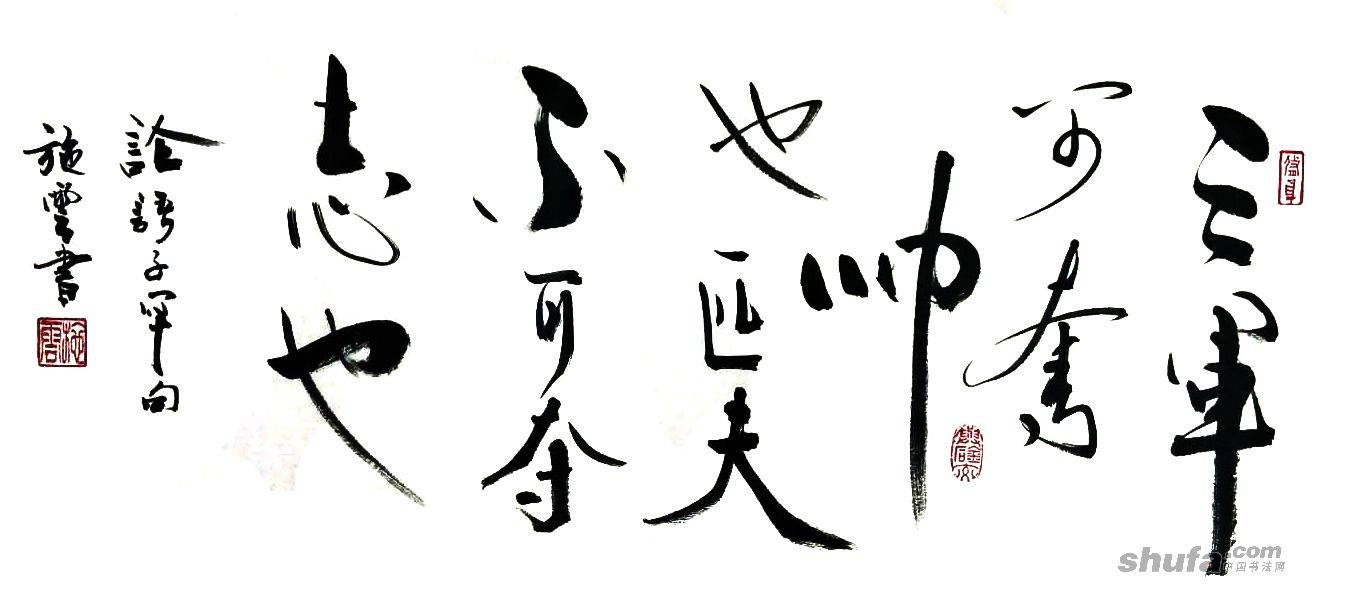 三軍
可奪
帅
也匹夫
不可夺
志也
論語子罕句
施雲書
shufa.com
中国书法网